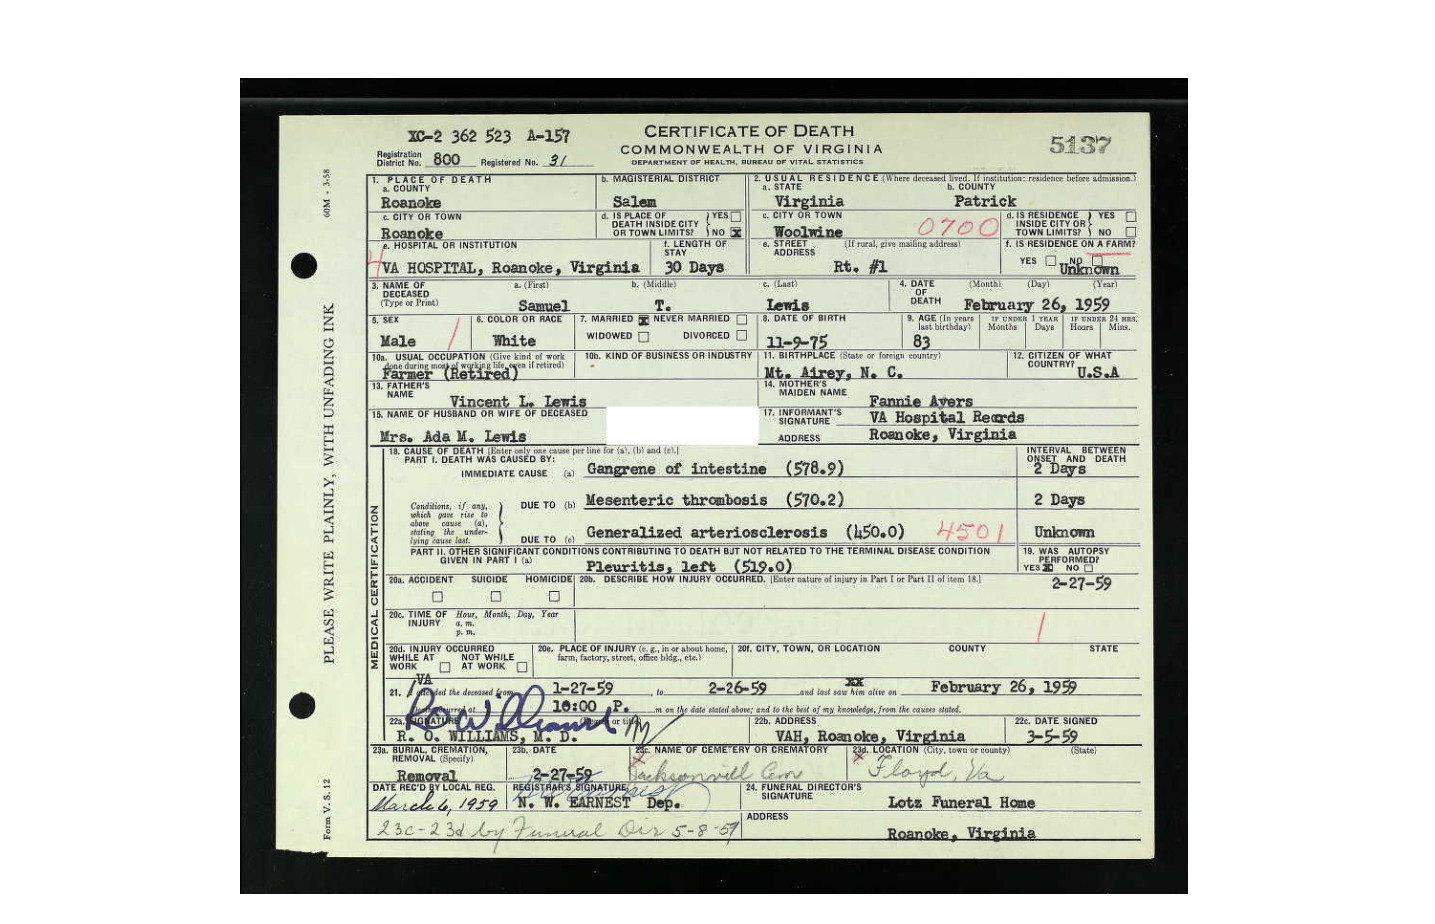 XC-2 362 523 A-157
CERTIFICATE OF DEATH
COMMONWEALTH OF VIRGINIA
DEPARTMENT OF HEALTH, BUREAU OF VITAL STATISTICS
5137
Registration District No. 800 Registered No. 31
60M - 3-58
PLEASE WRITE PLAINLY, WITH UNFADING INK
Form V. S. 12
1. PLACE OF DEATH
a. COUNTY
Roanoke
b. MAGISTERIAL DISTRICT
Salem
2. USUAL RESIDENCE (Where deceased lived. If institution: residence before admission.)
a. STATE
Virginia
b. COUNTY
Patrick
c. CITY OR TOWN
Roanoke
d. IS PLACE OF DEATH INSIDE CITY OR TOWN LIMITS? YES NO X
c. CITY OR TOWN
Woolwine
0700
d. IS RESIDENCE INSIDE CITY OR TOWN LIMITS? YES NO
4
e. HOSPITAL OR INSTITUTION
VA HOSPITAL, Roanoke, Virginia
f. LENGTH OF STAY
30 Days
e. STREET ADDRESS (If rural, give mailing address)
Rt. #1
f. IS RESIDENCE ON A FARM?
YES NO
Unknown
3. NAME OF DECEASED (Type or Print)
a. (First) b. (Middle) c. (Last)
Samuel T. Lewis
4. DATE OF DEATH (Month) (Day) (Year)
February 26, 1959
5. SEX
Male
1
6. COLOR OR RACE
White
7. MARRIED X NEVER MARRIED
WIDOWED DIVORCED
8. DATE OF BIRTH
11-9-75
9. AGE (In years last birthday)
83
IF UNDER 1 YEAR
Months Days
IF UNDER 24 HRS.
Hours Mins.
10a. USUAL OCCUPATION (Give kind of work done during most of working life, even if retired)
Farmer (Retired)
10b. KIND OF BUSINESS OR INDUSTRY
11. BIRTHPLACE (State or foreign country)
Mt. Airey, N. C.
12. CITIZEN OF WHAT COUNTRY?
U.S.A
13. FATHER'S NAME
Vincent L. Lewis
14. MOTHER'S MAIDEN NAME
Fannie Ayers
15. NAME OF HUSBAND OR WIFE OF DECEASED
Mrs. Ada M. Lewis
17. INFORMANT'S SIGNATURE
VA Hospital Records
ADDRESS
Roanoke, Virginia
MEDICAL CERTIFICATION
18. CAUSE OF DEATH [Enter only one cause per line for (a), (b) and (c).]
PART I. DEATH WAS CAUSED BY:
INTERVAL BETWEEN ONSET AND DEATH
IMMEDIATE CAUSE (a) Gangrene of intestine (578.9) 2 Days
Conditions, if any, which gave rise to above cause (a), stating the underlying cause last.
DUE TO (b) Mesenteric thrombosis (570.2) 2 Days
DUE TO (c) Generalized arteriosclerosis (450.0) 4501 Unknown
PART II. OTHER SIGNIFICANT CONDITIONS CONTRIBUTING TO DEATH BUT NOT RELATED TO THE TERMINAL DISEASE CONDITION GIVEN IN PART I (a)
Pleuritis, left (519.0)
19. WAS AUTOPSY PERFORMED?
YES X NO
2-27-59
20a. ACCIDENT SUICIDE HOMICIDE
20b. DESCRIBE HOW INJURY OCCURRED. [Enter nature of injury in Part I or Part II of item 18.]
20c. TIME OF INJURY Hour, Month, Day, Year
a. m.
p. m.
1
20d. INJURY OCCURRED
WHILE AT WORK NOT WHILE AT WORK
20e. PLACE OF INJURY (e. g., in or about home, farm, factory, street, office bldg., etc.)
20f. CITY, TOWN, OR LOCATION COUNTY STATE
VA
21. attended the deceased from 1-27-59, to 2-26-59 and last saw him alive on February 26, 1959
10:00 P. m on the date stated above; and to the best of my knowledge, from the causes stated.
22a. SIGNATURE (Degree or title)
R. O. Williams
R. O. WILLIAMS, M. D.
22b. ADDRESS
VAH, Roanoke, Virginia
22c. DATE SIGNED
3-5-59
23a. BURIAL, CREMATION, REMOVAL (Specify)
Removal
23b. DATE
2-27-59
23c. NAME OF CEMETERY OR CREMATORY
Jacksonvill Cem
23d. LOCATION (City, town or county) (State)
Floyd, Va
DATE REC'D BY LOCAL REG.
March 6, 1959
REGISTRAR'S SIGNATURE
N. W. EARNEST Dep.
24. FUNERAL DIRECTOR'S SIGNATURE
Lotz Funeral Home
ADDRESS
Roanoke, Virginia
23c-23d by Funeral Dir 5-8-59